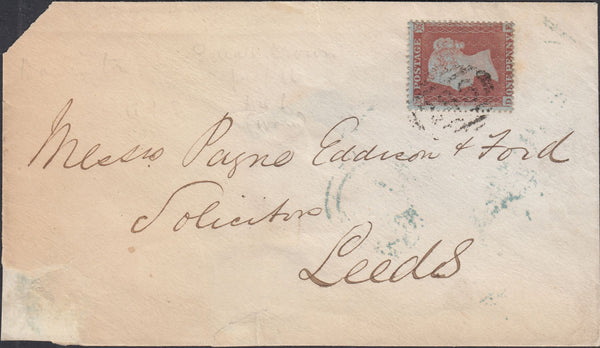 POSTAGE
ONE PENNY
Messrs Payne Eddison & Ford
Solicitors
Leeds